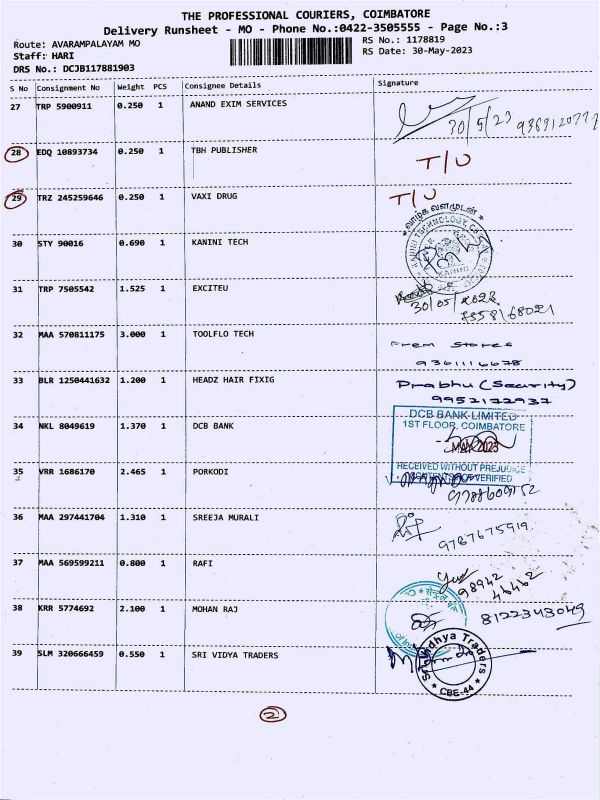 THE PROFESSIONAL COURIERS, COIMBATORE
Delivery Runsheet - MO - Phone No.:0422-3505555 - Page No.:3
Route: AVARAMPALAYAM MO
RS No.: 1178819
Staff: HARI
RS Date: 30-May-2023
DRS No.: DCJB117881903
S No Consignment No Weight PCS Consignee Details Signature
27 TRP 5900911 0.250 1 ANAND EXIM SERVICES
30/5/23
28 EDQ 10893734 0.250 1 TBH PUBLISHER T/U
29 TRZ 245259646 0.250 1 VAXI DRUG T/U
வாழ்க வளமுடன்
30 STY 90016 0.690 1 KANINI TECH
KANINI
31 TRP 7505542 1.525 1 EXCITEU
30/05/2023
32 MAA 570811175 3.000 1 TOOLFLO TECH
Prem Stores
9361116678
33 BLR 1250441632 1.200 1 HEADZ HAIR FIXIG Prabhu (Security)
9952172937
34 NKL 8049619 1.370 1 DCB BANK
DCB BANK LIMITED
1ST FLOOR, COIMBATORE
MAY 2023
RECEIVED WITHOUT PREJUDICE
CONTENTS NOT VERIFIED
35 VRR 1686170 2.465 1 PORKODI
36 MAA 297441704 1.310 1 SREEJA MURALI
9787675919
37 MAA 569599211 0.800 1 RAFI
98942
46462
38 KRR 5774692 2.100 1 MOHAN RAJ 8122343049
39 SLM 320666459 0.550 1 SRI VIDYA TRADERS
Traders
CBE-44
2